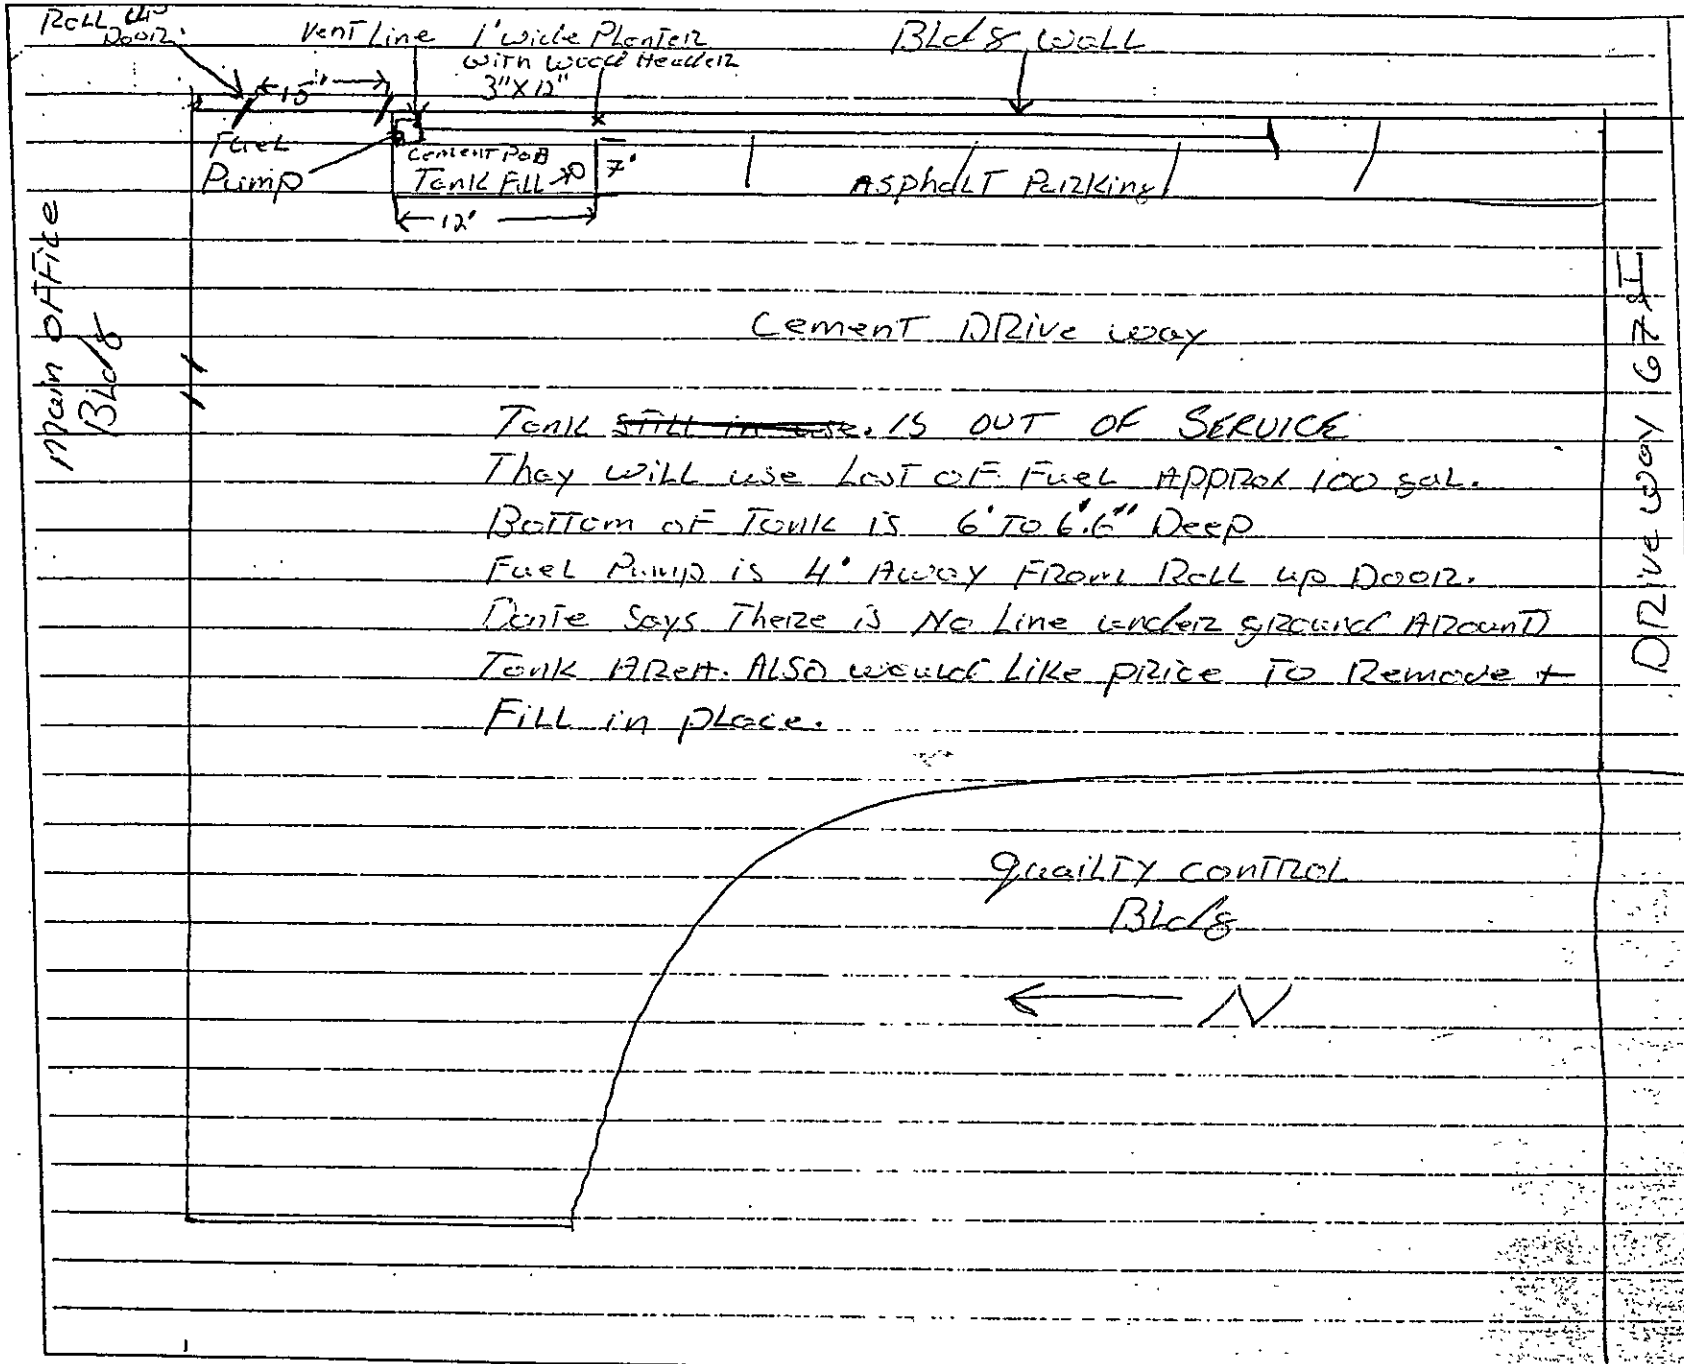 Roll up
Door.
Vent Line
1' wide Planter
with wood Header
3"X12"
Bldg wall
15'
Fuel
Pump
Cement Pad
Tank Fill
7'
12'
Asphalt Parking
Main office
Bldg
Cement Drive way
Tank still in use. IS OUT OF SERVICE
They will use Last of Fuel Approx 100 gal.
Bottom of Tank is 6' To 6'.6" Deep
Fuel Pump is 4' Away From Roll up Door.
Says There is No Line under ground Around
Tank Area. Also would Like price To Remove +
Fill in place.
Drive way
Quailty control
Bldg
N